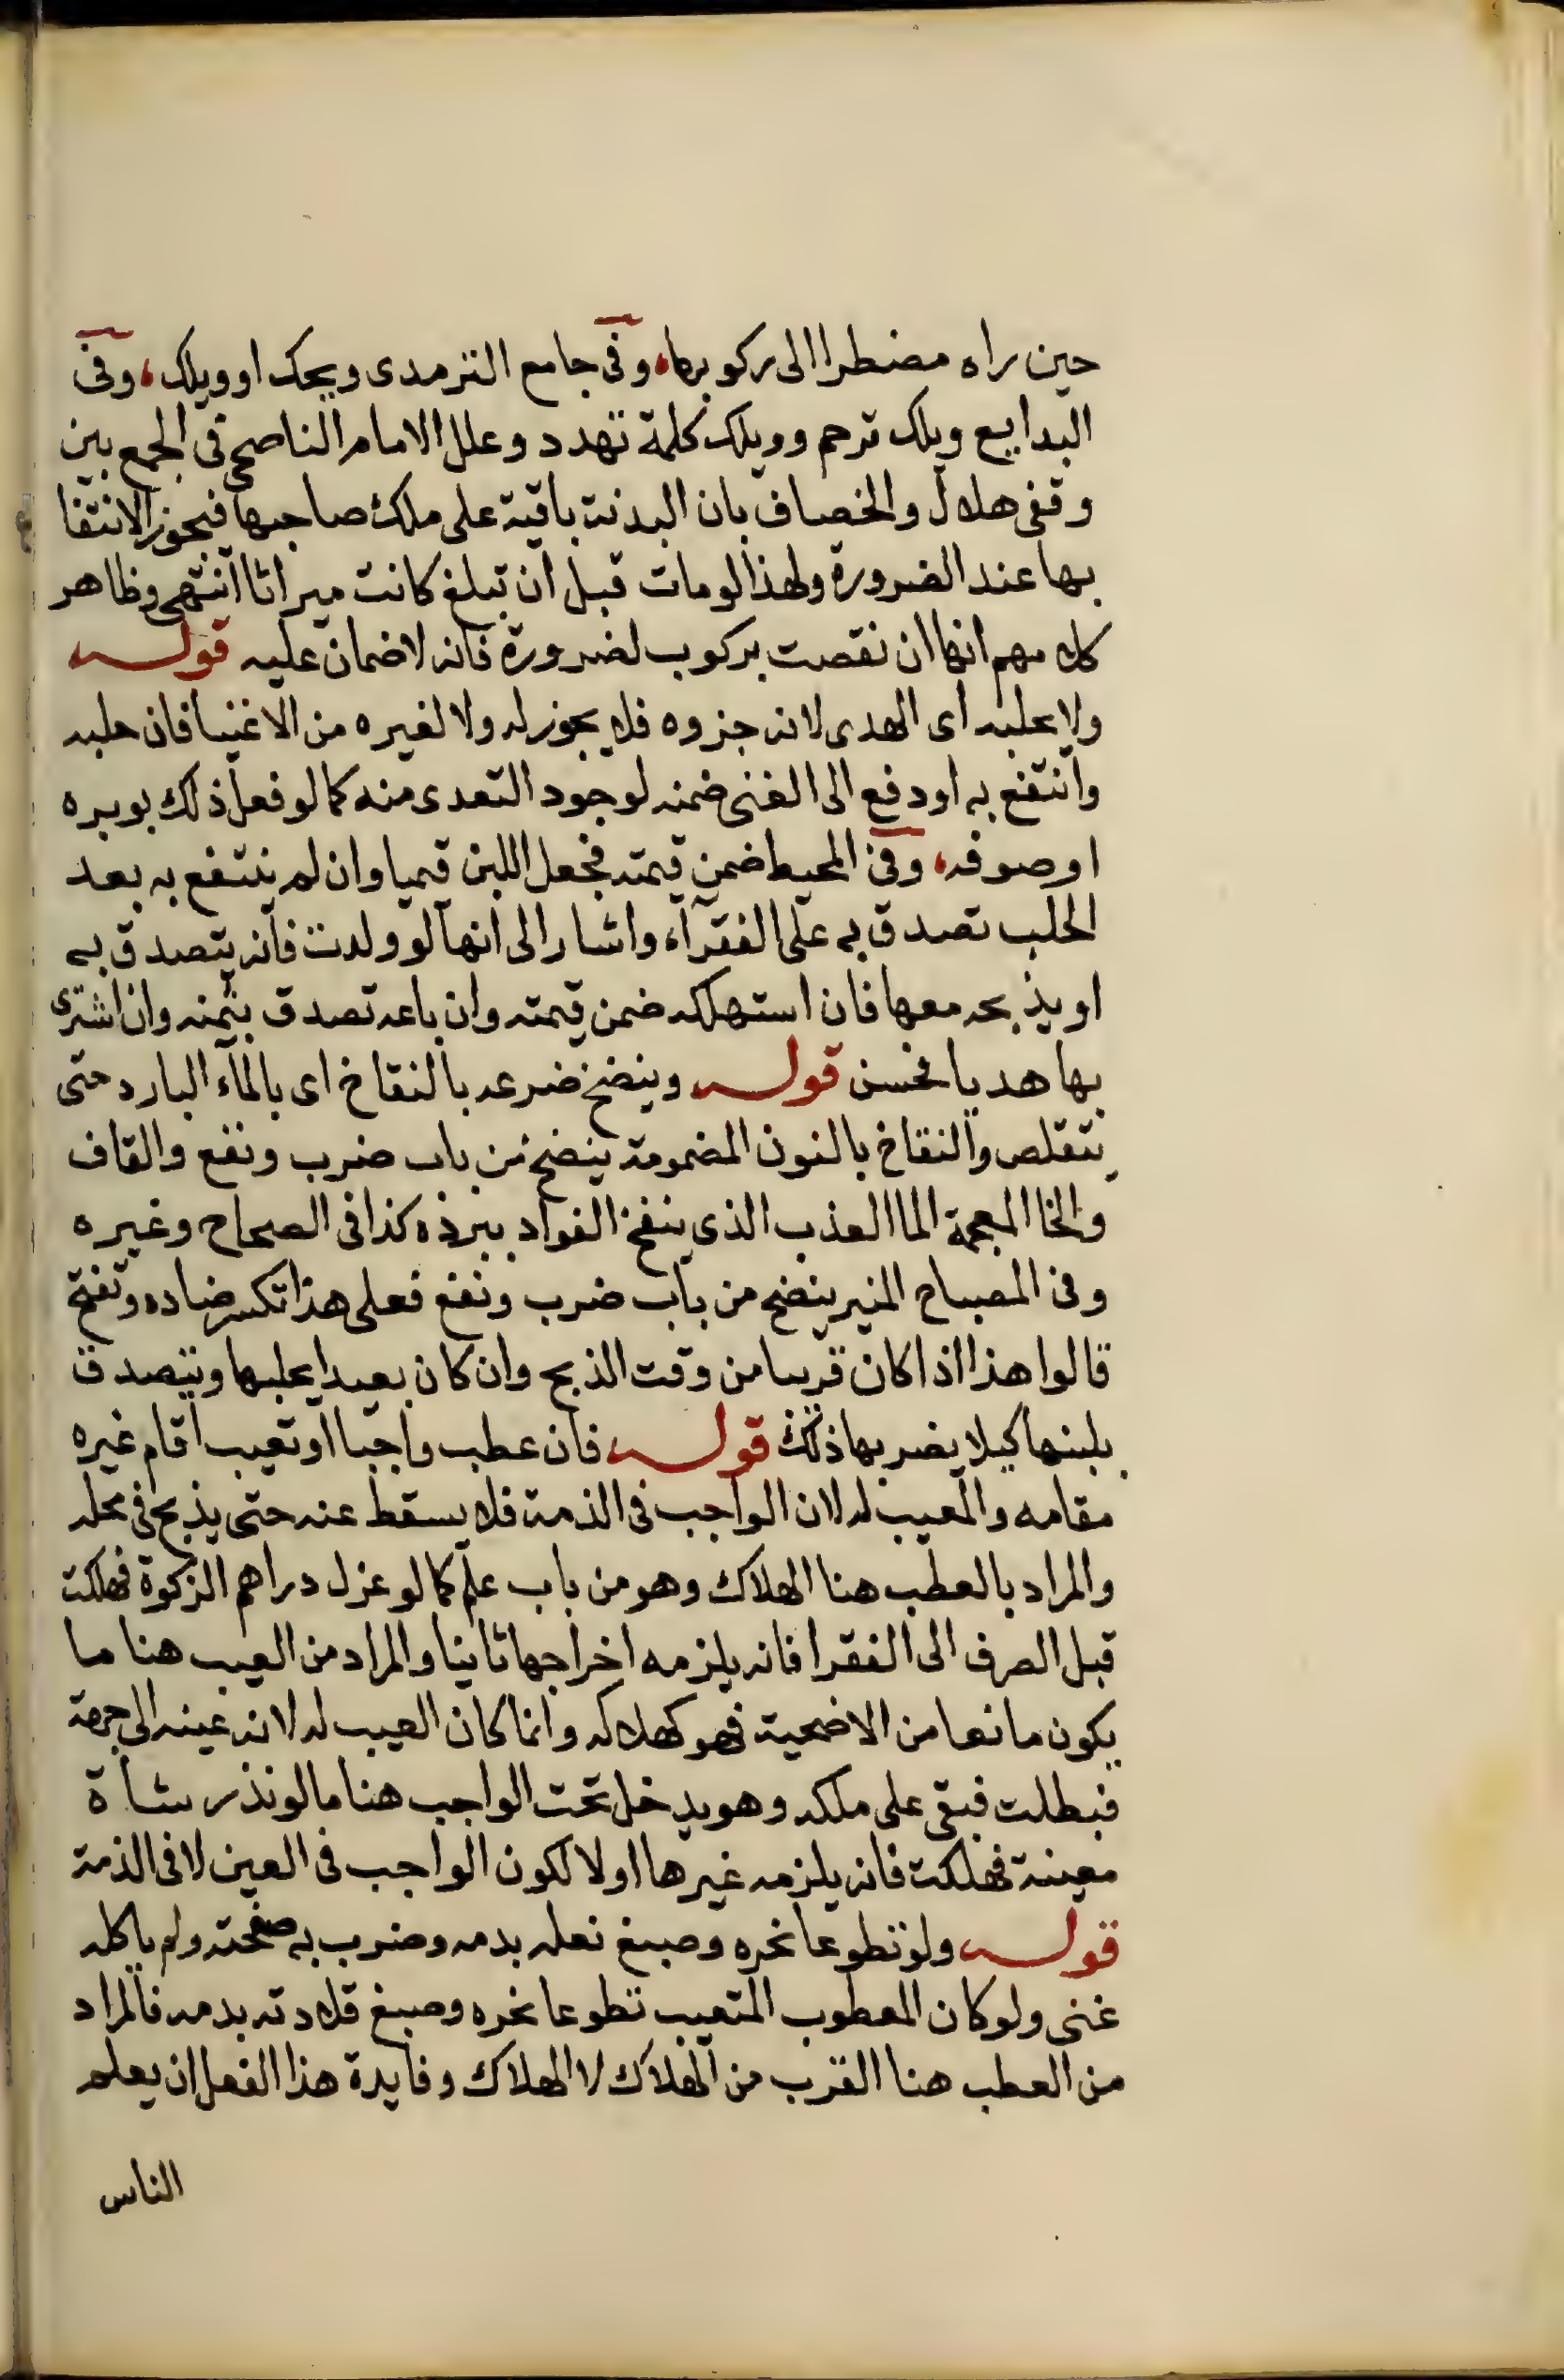 حين راه مضطرا الى ركوبها، وفى جامع الترمدى ويحك او ويلك، وفى
البدايع ويلك ترحم وويلك كلمة تهدد وعلل الامام الناصحى فى الجمع بين
وقفى هلال والخصاف بان البدنة باقية على ملك صاحبها فيجوز الانتفا
بها عند الضرورة ولهذا لو مات قبل ان تبلغ كانت ميراثا انتهى وظاهر
كلامهم انها ان نقصت بركوب لضرورة فانه لا ضمان عليه قوله
ولا يحلبه اى الهدى لانه جزوه فلا يجوز له ولا لغيره من الاغنيا فان حلبه
وانتفع به او دفع الى الغنى ضمنه لوجود التعدى منه كما لو فعل ذلك بوبره
او صوفه، وفى المحيط ضمن قيمته فجعل اللبن قيميا وان لم ينتفع به بعد
الحلب تصدق به على الفقرآء، واشار الى انها لو ولدت فانه يتصدق به
او يذبحه معها فان استهلكه ضمن قيمته وان باعه تصدق بثمنه وان اشترى
بها هديا فحسن قوله وينضح ضرعه بالنقاخ اى بالمآء البارد حتى
يتقلص والنقاخ بالنون المضمومة ينضح من باب ضرب ونفع والقاف
والخا المعجمة الما العذب الذى ينقخ الفواد ببرده كذا فى الصحاح وغيره
وفى المصباح المنير ينضح من باب ضرب ونفع فعلى هذا تكسر ضاده وتفتح
قالوا هذا اذا كان قريبا من وقت الذبح وان كان بعيدا يحلبها ويتصدق
بلبنها كيلا يضر بها ذلك قوله فان عطب واجبا او تعيب اقام غيره
مقامه والمعيب له لان الواجب فى الذمة فلا يسقط عنه حتى يذبح فى محله
والمراد بالعطب هنا الهلاك وهو من باب علم كما لو عزل دراهم الزكوة فهلكت
قبل الصرف الى الفقرا فانه يلزمه اخراجها ثانيا والمراد من العيب هنا ما
يكون مانعا من الاضحية فهو كهلاكه وانما كان العيب له لانه عينه الى جهة
فبطلت فبقى على ملكه وهو يدخل تحت الواجب هنا ما لو نذر شاة
معينة فهلكت فانه يلزمه غيرها اولا لكون الواجب فى العين لا فى الذمة
قوله ولو تطوعا نحره وصبغ نعله بدمه وضرب به صفحته ولم ياكله
غنى ولو كان المعطوب المتعيب تطوعا نحره وصبغ قلادته بدمه فالمراد
من العطب هنا القرب من الهلاك لا الهلاك وفايدة هذا الفعل ان يعلم
الناس